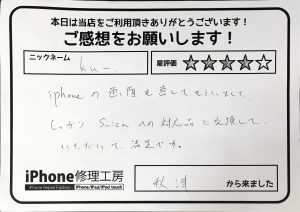 本日は当店をご利用頂きありがとうございます！
ご感想をお願いします！
ニックネーム
ku-.
星評価
iphoneの画面を直してもらいました。
しっかりSuicaへの対応品に交換して
いただいて、満足です。
iPhone修理工房
iPhone Repair Factory
iPhone/iPad/iPod touch
秋津
から来ました